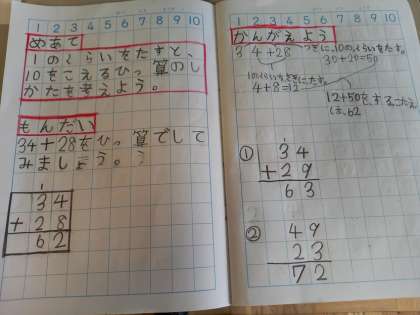 1 2 3 4 5 6 7 8 9 10
めあて
1のくらいをたすと、
10をこえるひっ算のし
かたを考えよう。
もんだい
34+28をひっ算でして
みましょう。
1
34
+28
62
1 2 3 4 5 6 7 8 9 10
かんがえよう
34+28
つぎに、10のくらいをたす。
30+20=50
1のくらいをさきにたす。
4+8=12
12+50をする。こたえ
は、62
①
1
34
+29
63
②
49
23
72